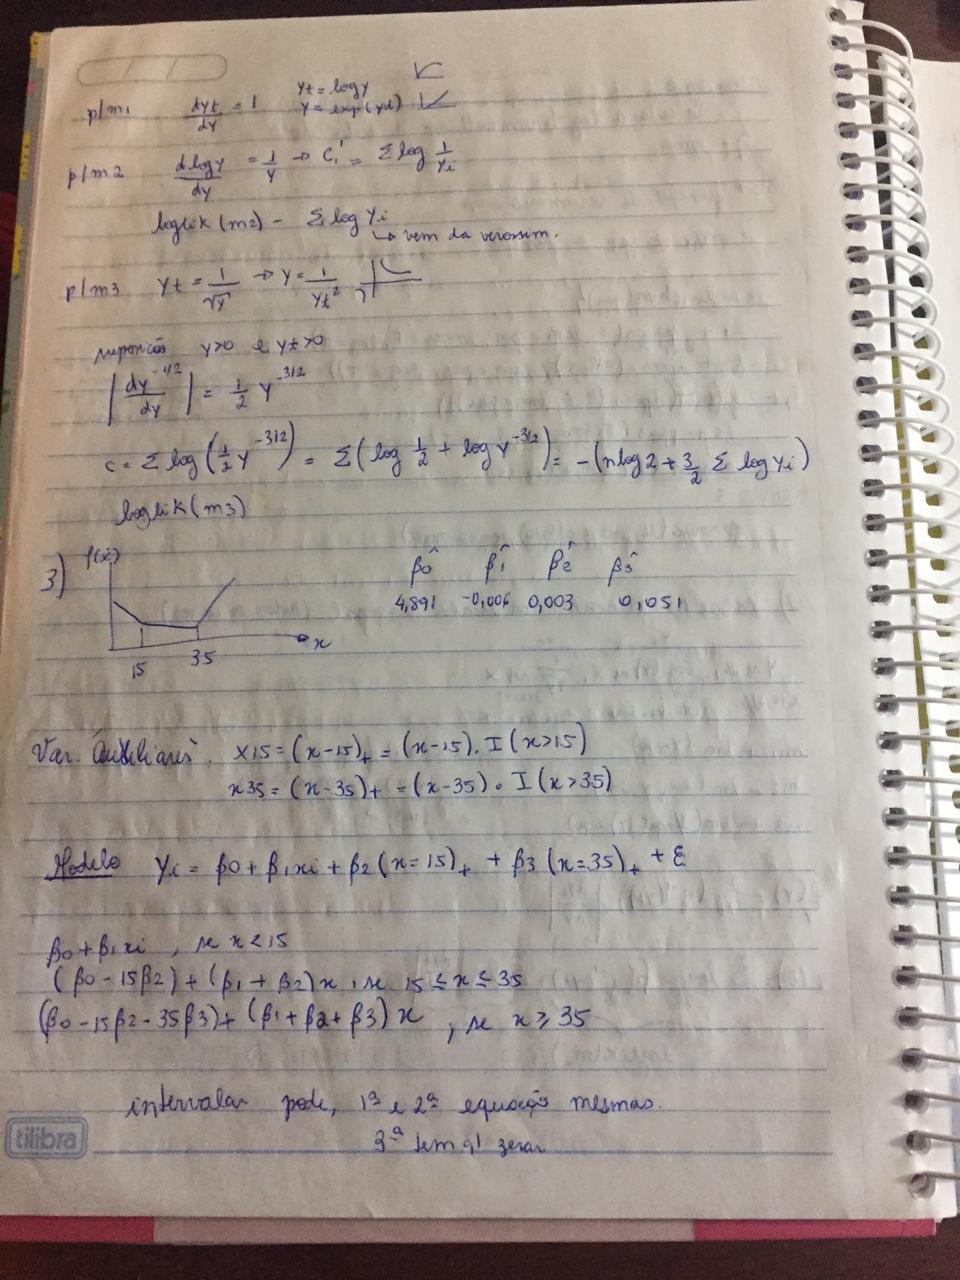 p/m1 dyt/dy = 1 yt = log y
y = exp(yt)
p/m2 dlogy/dy = 1/y → C1' = Σ log 1/yi
loglik (m2) - Σ log yi
↳ vem da verossim.
p/m3 yt = 1/√y → y = 1/yt²
y>0 e yt>0
|dy^-1/2 / dy| = 1/2 y^-3/2
c = Σ log (1/2 y^-3/2) = Σ (log 1/2 + log y^-3/2) = -(n log 2 + 3/2 Σ log yi)
loglik (m3)
3) f(x) β̂0 β̂1 β̂2 β̂3
4,891 -0,006 0,003 0,051
15 35 x
Var. Auxiliares. x15 = (x-15)+ = (x-15). I (x>15)
x35 = (x-35)+ = (x-35) • I (x>35)
Modelo Yi = β0 + β1xi + β2 (x=15)+ + β3 (x=35)+ + ε
β0 + β1xi , se x<15
(β0 - 15β2) + (β1 + β2)x , se 15 ≤ x ≤ 35
(β0 - 15β2 - 35β3) + (β1 + β2 + β3) x , se x ≥ 35
intervalar pode, 1ª e 2ª equação mesmas.
3ª tem q/ zerar
tilibra